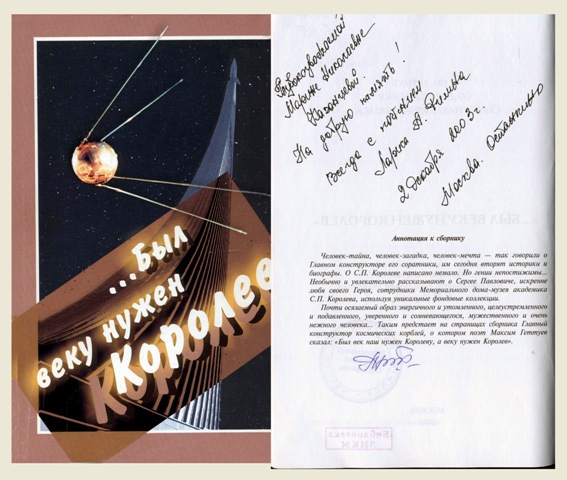 ...Был
веку нужен
Королев
Глубокоуважаемой
Марине Николаевне
На добрую память!
Всегда с
Лариса А. Филина
2 декабря 2003 г.
Москва. Останкино
Аннотация к сборнику
Человек-тайна, человек-загадка, человек-мечта — так говорили о
Главном конструкторе его соратники, им сегодня вторят историки и
биографы. О С.П. Королеве написано немало. Но гении непостижимы...
Необычно и увлекательно рассказывают о Сергее Павловиче, искренне
любя своего Героя, сотрудники Мемориального дома-музея академика
С.П. Королева, используя уникальные фондовые коллекции.
Почти осязаемый образ энергичного и утомленного, целеустремленного
и подавленного, уверенного и сомневающегося, мужественного и очень
нежного человека... Таким предстает на страницах сборника Главный
конструктор космических корблей, о котором поэт Максим Геттуев
сказал: «Был век наш нужен Королеву, а веку нужен Королев».
Библиотека
ЛИКМ